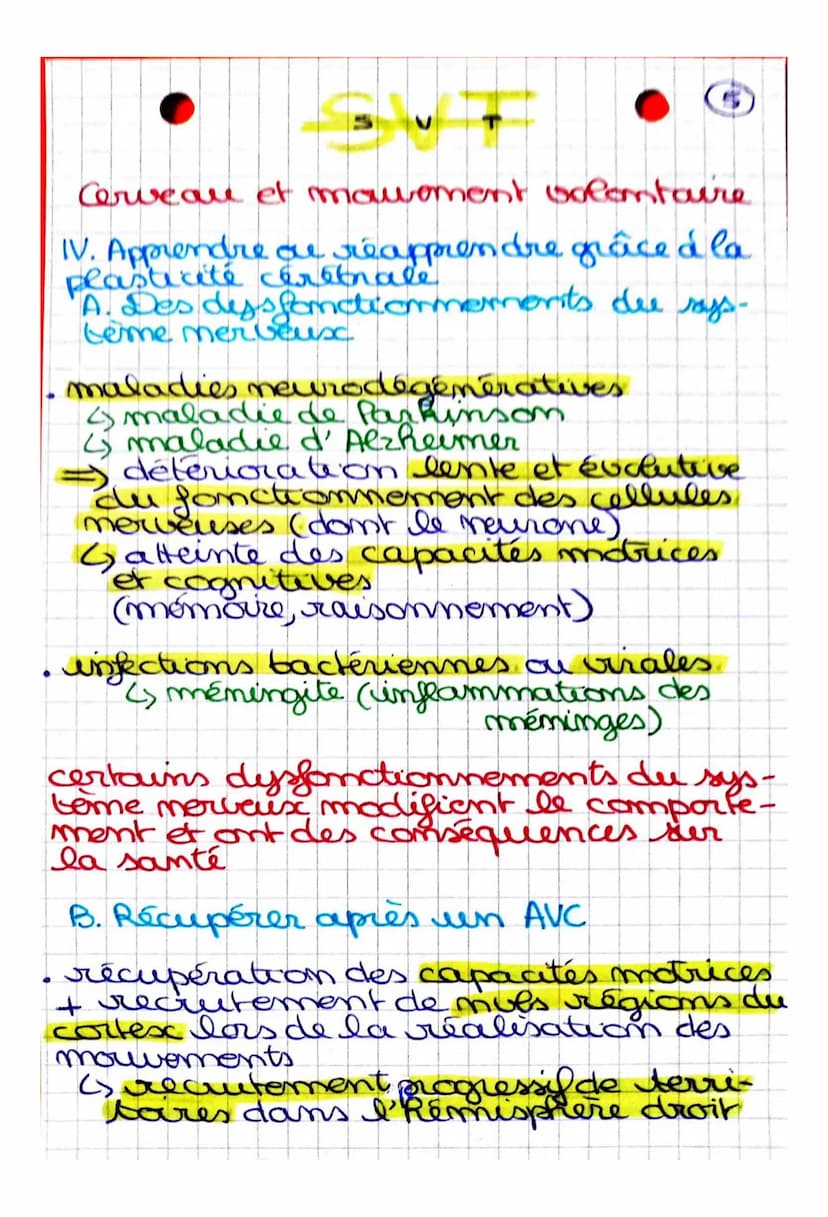 SVT
S V T
5
Cerveau et mouvement volontaire
IV. Apprendre ou réapprendre grâce à la
plasticité cérébrale
A. Des dysfonctionnements du sys-
tème nerveux
. maladies neurodégénératives
↳ maladie de Parkinson
↳ maladie d'Alzheimer
⇒ détérioration lente et évolutive
du fonctionnement des cellules
nerveuses (dont le neurone)
↳ atteinte des capacités motrices
et cognitives
(mémoire, raisonnement)
. infections bactériennes ou virales
↳ méningite (inflammations des
méninges)
certains dysfonctionnements du sys-
tème nerveux modifient le comporte-
ment et ont des conséquences sur
la santé
B. Récupérer après un AVC
. récupération des capacités motrices
+ recrutement de nvles régions du
cortex lors de la réalisation des
mouvements
↳ recrutement progressif de terri-
toires dans l'hémisphère droit